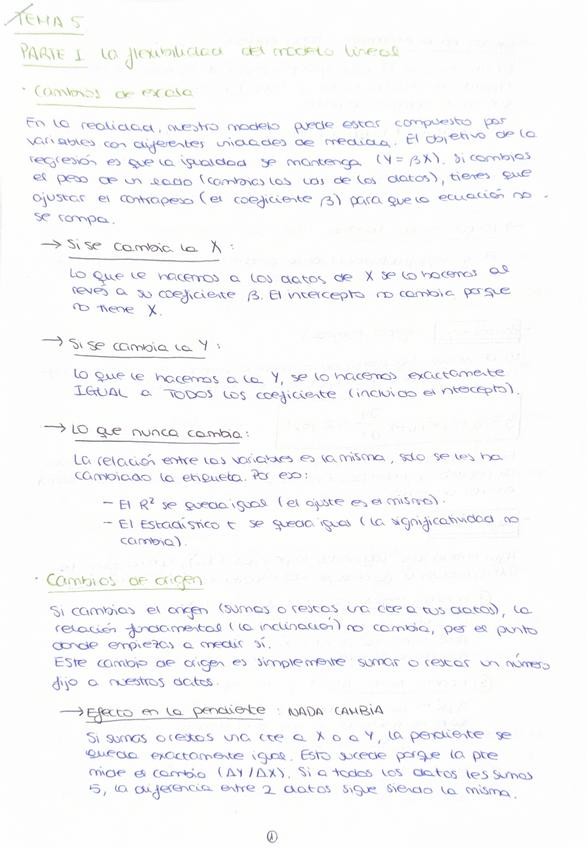 TEMA 5
PARTE I La flexibilidad del modelo lineal
· Cambios de escala
En la realidad, nuestro modelo puede estar compuesto por
variables con diferentes unidades de medida. El objetivo de la
regresión es que la igualdad se mantenga (Y = βX). Si cambias
el peso de un lado (cambias las uds de los datos), tienes que
ajustar el contrapeso (el coeficiente β) para que la ecuación no
se rompa.
→ Si se cambia la X:
Lo que le hacemos a los datos de X se lo hacemos al
revés a su coeficiente β. El intercepto no cambia porque
no tiene X.
→ Si se cambia la Y:
Lo que le hacemos a la Y, se lo hacemos exactamente
IGUAL a TODOS los coeficiente (incluido el intocepto).
→ Lo que nunca cambia:
La relación entre las variables es la misma, solo se les ha
cambiado la etiqueta. Por eso:
- El R² se queda igual (el ajuste es el mismo).
- El Estadístico t se queda igual (la significatividad no
cambia).
· Cambios de origen
Si cambias el origen (sumas o restas una cte a tus datos), la
relación fundamental (la inclinación) no cambia, pero el punto
donde empiezas a medir sí.
Este cambio de origen es simplemente sumar o restar un número
fijo a nuestros datos.
→ Efecto en la pendiente: NADA CAMBIA
Si sumas o restas una cte a X o a Y, la pendiente se
queda exactamente igual. Esto sucede porque la pte
mide el cambio (ΔY/ΔX). Si a todos los datos les sumas
5, la diferencia entre 2 datos sigue siendo la misma.
1